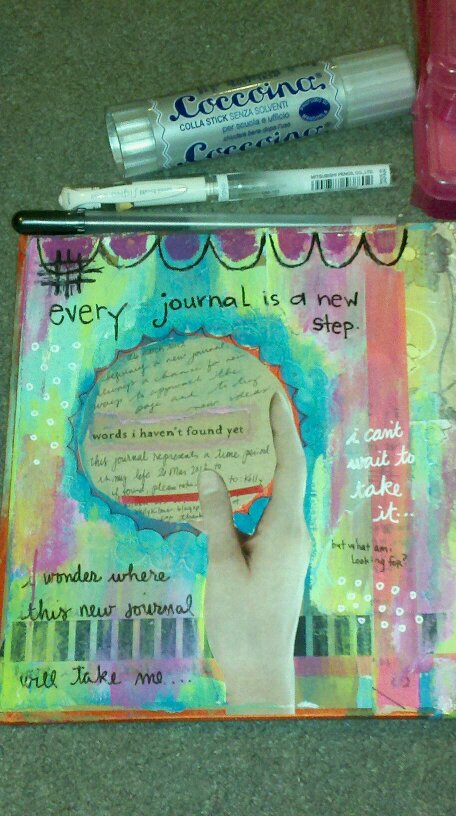 Coccoina
COLLA STICK SENZA SOLVENTI
per scuola e ufficio
chiudere bene dopo l'uso
Coccoina
MITSUBISHI PENCIL CO., LTD.
every journal is a new
step.
beginning a new journal
always a chance for new
ways to approach the
page and to try
new ideas
words i haven't found yet
this journal represents a time period
in my life 20 Mar
if found, please to Kelly
i cant
wait to
take
it...
but what am i
looking for?
i wonder where
this new journal
will take me...